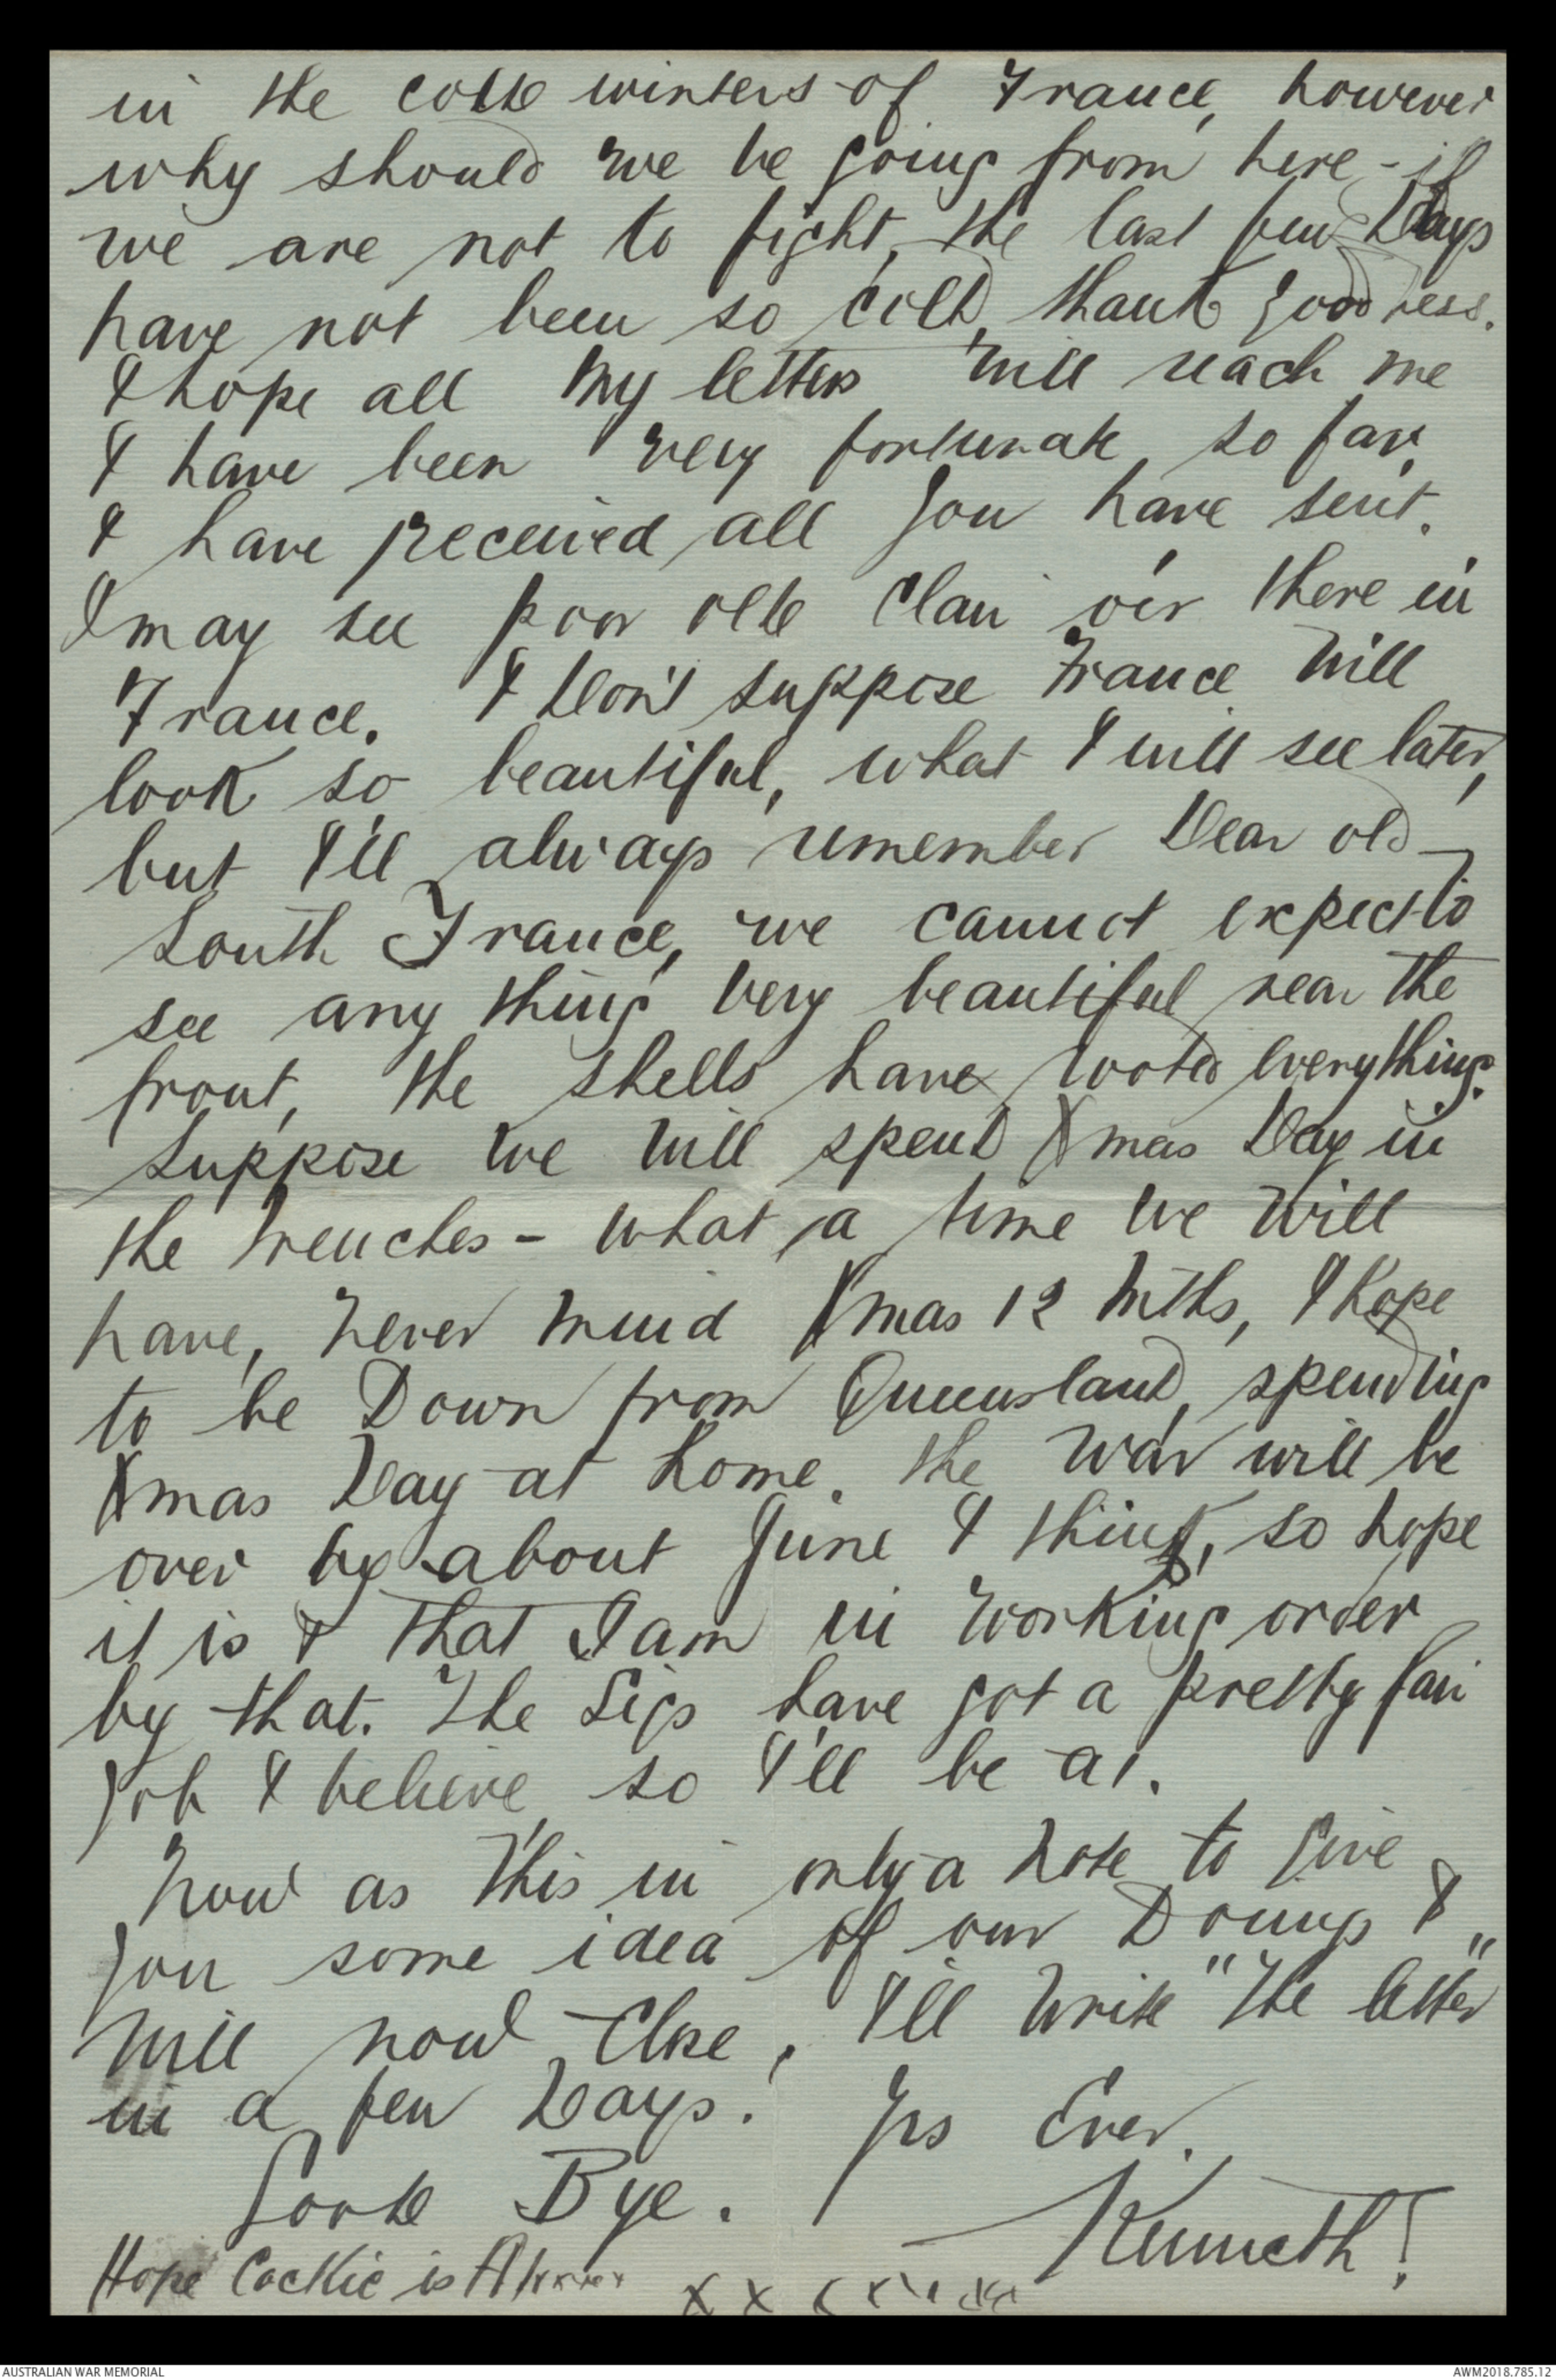 in the cold winters of France, however
why should we be going from here - if
we are not to fight, the last few Days
have not been so cold, thank goodness.
I hope all my letters will reach me
I have been very fortunate, so far,
I have received all you have sent.
I may see poor old Clair o'er there in
France. I Don't suppose France will
look so beautiful, what I will see later,
but I'll always remember Dear old
South France, we cannot expect to
see any thing very beautiful near the
front, the shells have rooted everything.
Suppose we will spend Xmas Day in
the trenches - what a time we will
have, never mind Xmas 12 mths, I hope
to be Down from Queensland, spending
Xmas Day at home. the war will be
over by about June I think, so hope
it is & that I am in working order
by that. The Sigs have got a pretty fair
job I believe, so I'll be a1.
Now as this in only a note to give
you some idea of our Doings I
will now close, I'll write "the letter"
in a few Days. Yrs Ever.
Good Bye. Kenneth!
Hope Cockie is A1 xxxxx x x x x x x x x
AUSTRALIAN WAR MEMORIAL AWM2018.785.12